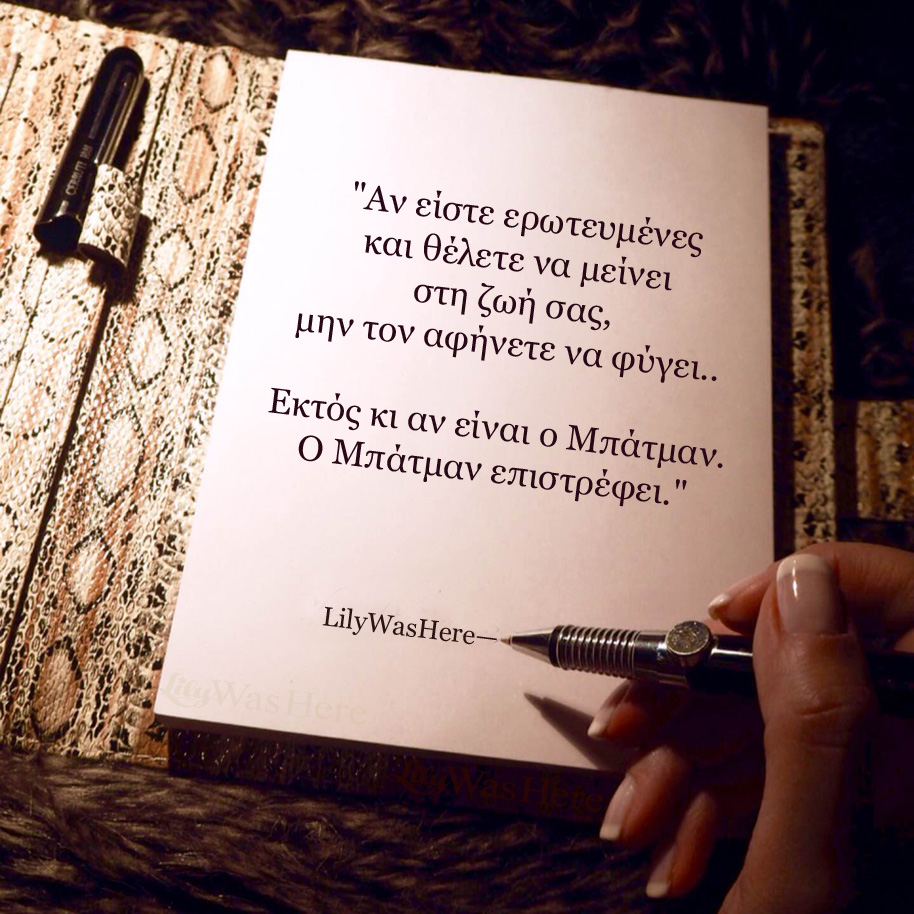 "Αν είστε ερωτευμένες
και θέλετε να μείνει
στη ζωή σας,
μην τον αφήνετε να φύγει..
Εκτός κι αν είναι ο Μπάτμαν.
Ο Μπάτμαν επιστρέφει."
LilyWasHere—
LilyWasHere
LilyWasHere